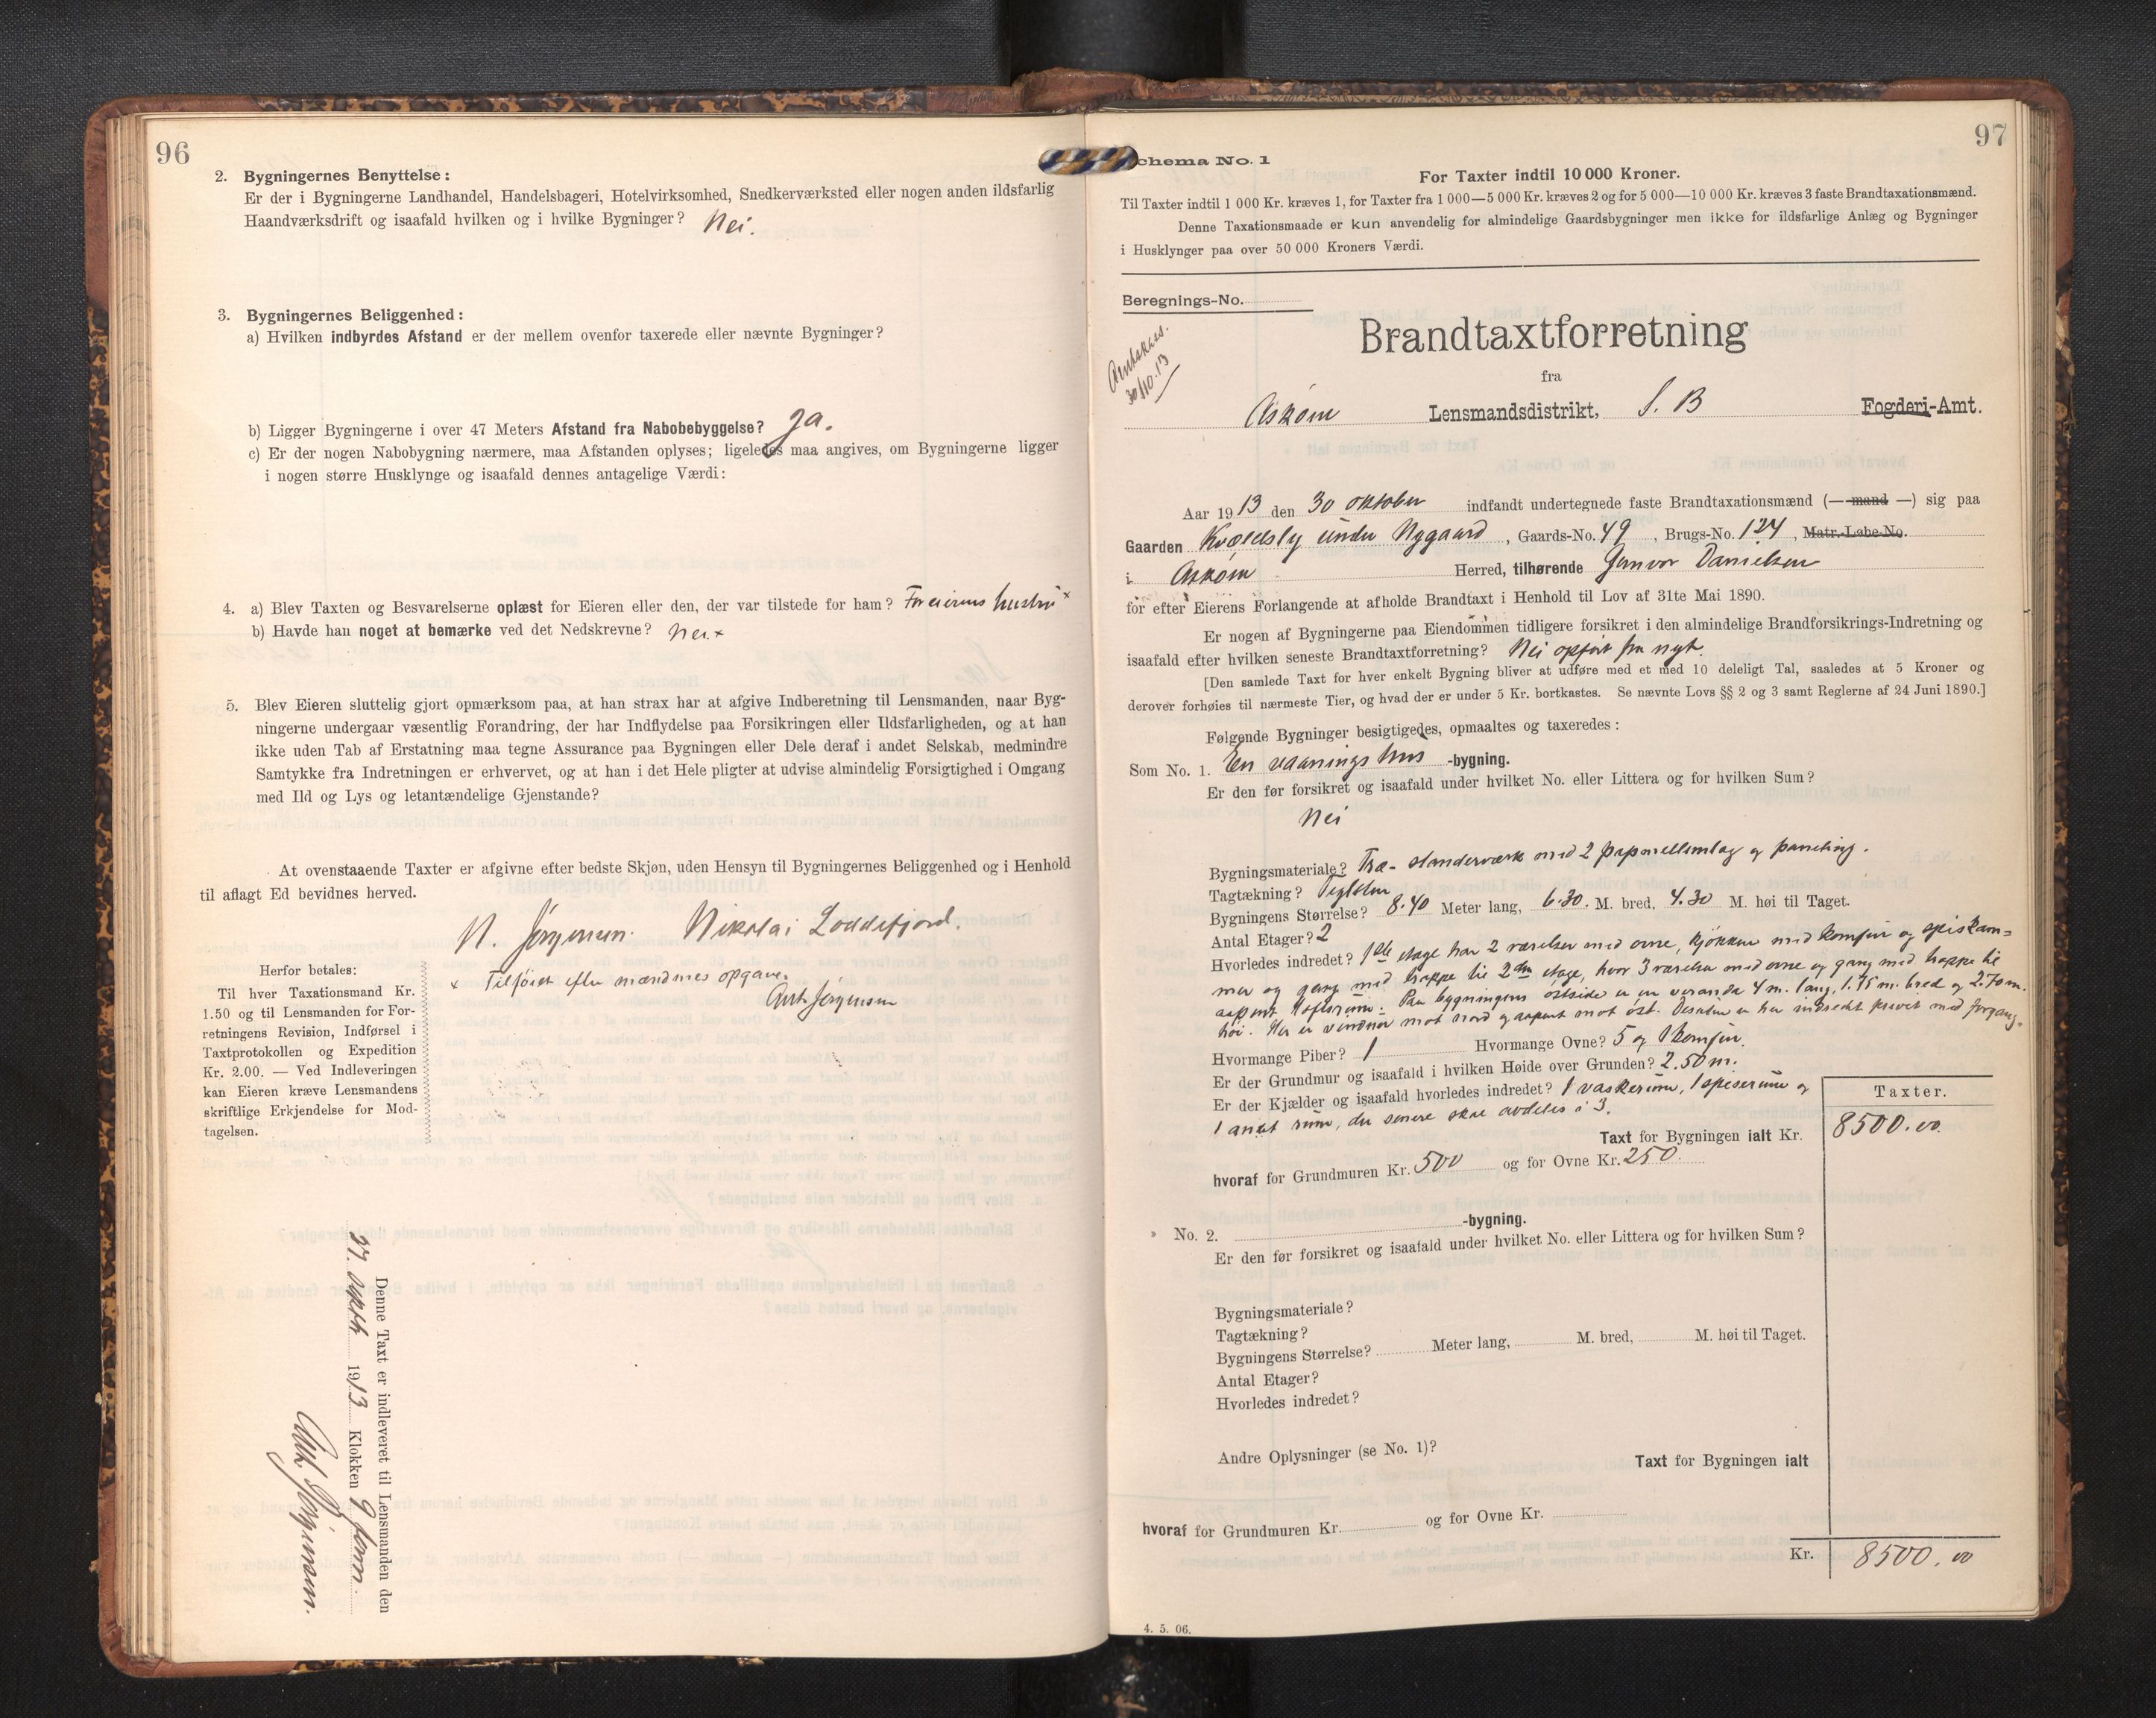 96
2. Bygningernes Benyttelse:
Er der i Bygningerne Landhandel, Handelsbageri, Hotelvirksomhed, Snedkerværksted eller nogen anden ildsfarlig
Haandværksdrift og isaafald hvilken og i hvilke Bygninger? Nei.
3. Bygningernes Beliggenhed:
a) Hvilken indbyrdes Afstand er der mellem ovenfor taxerede eller nævnte Bygninger?
b) Ligger Bygningerne i over 47 Meters Afstand fra Nabobebyggelse? Ja.
c) Er der nogen Nabobygning nærmere, maa Afstanden oplyses; ligeledes maa angives, om Bygningerne ligger
i nogen større Husklynge og isaafald dennes antagelige Værdi:
4. a) Blev Taxten og Besvarelserne oplæst for Eieren eller den, der var tilstede for ham? For eierens hustru x
b) Havde han noget at bemærke ved det Nedskrevne? Nei. x
5. Blev Eieren sluttelig gjort opmærksom paa, at han strax har at afgive Indberetning til Lensmanden, naar Byg-
ningerne undergaar væsentlig Forandring, der har Indflydelse paa Forsikringen eller Ildsfarligheden, og at han
ikke uden Tab af Erstatning maa tegne Assurance paa Bygningen eller Dele deraf i andet Selskab, medmindre
Samtykke fra Indretningen er erhvervet, og at han i det Hele pligter at udvise almindelig Forsigtighed i Omgang
med Ild og Lys og letantændelige Gjenstande?
At ovenstaaende Taxter er afgivne efter bedste Skjøn, uden Hensyn til Bygningernes Beliggenhed og i Henhold
til aflagt Ed bevidnes herved.
N. Jørgensen. Nikolai Loddefjord.
x Tilføiet efter mændenes opgave.
Ant. Jørgensen
Herfor betales:
Til hver Taxationsmand Kr.
1.50 og til Lensmanden for For-
retningens Revision, Indførsel i
Taxtprotokollen og Expedition
Kr. 2.00. — Ved Indleveringen
kan Eieren kræve Lensmandens
skriftlige Erkjendelse for Mod-
tagelsen.
Denne Taxt er indleveret til Lensmanden den
1913 Klokken 9 form.
Ant. Jørgensen.
97
chema No. 1
For Taxter indtil 10 000 Kroner.
Til Taxter indtil 1 000 Kr. kræves 1, for Taxter fra 1 000—5 000 Kr. kræves 2 og for 5 000—10 000 Kr. kræves 3 faste Brandtaxationsmænd.
Denne Taxationsmaade er kun anvendelig for almindelige Gaardsbygninger men ikke for ildsfarlige Anlæg og Bygninger
i Husklynger paa over 50 000 Kroners Værdi.
Beregnings-No.
30/10.13
Brandtaxtforretning
fra
Askøen Lensmandsdistrikt, S. B Fogderi-Amt.
Aar 1913 den 30 oktober indfandt undertegnede faste Brandtaxationsmænd (— mand —) sig paa
Gaarden Kvældsly under Nygaard, Gaards-No. 49, Brugs-No. 124, Matr.-Løbe-No.
i Askøen Herred, tilhørende Gunvor Danielsen
for efter Eierens Forlangende at afholde Brandtaxt i Henhold til Lov af 31te Mai 1890.
Er nogen af Bygningerne paa Eiendommen tidligere forsikret i den almindelige Brandforsikrings-Indretning og
isaafald efter hvilken seneste Brandtaxtforretning? Nei opført fra nyt.
[Den samlede Taxt for hver enkelt Bygning bliver at udføre med et med 10 deleligt Tal, saaledes at 5 Kroner og
derover forhøies til nærmeste Tier, og hvad der er under 5 Kr. bortkastes. Se nævnte Lovs §§ 2 og 3 samt Reglerne af 24 Juni 1890.]
Følgende Bygninger besigtigedes, opmaaltes og taxeredes:
Som No. 1. En vaanings hus -bygning.
Er den før forsikret og isaafald under hvilket No. eller Littera og for hvilken Sum?
Nei
Bygningsmateriale? Træ- standerværk med 2 papmellemlag og paneling.
Tagtækning? Teglsten
Bygningens Størrelse? 8.40 Meter lang, 6.30. M. bred, 4.30 M. høi til Taget.
Antal Etager? 2
Hvorledes indredet? 1ste etage har 2 værelser med ovne, kjøkken med komfur og spiskam=
mer og gang med trappe til 2den etage, hvor 3 værelser med ovne og gang med trappe til
aapent loftsrum. Paa bygningens østside er en veranda 4 m. lang, 1.75 m. bred og 2.70 m.
høi. Her er vinduer mot nord og aapent mot øst. Desuten er her indredt privet med forgang.
Hvormange Piber? 1 Hvormange Ovne? 5 og 1 komfur.
Er der Grundmur og isaafald i hvilken Høide over Grunden? 2.50 m.
Er der Kjælder og isaafald hvorledes indredet? 1 vaskerum, 1 spiserum og
1 andet rum, der senere skal avdeles i 3.
Taxter.
Taxt for Bygningen ialt Kr. 8500.00
hvoraf for Grundmuren Kr. 500 og for Ovne Kr. 250.
» No. 2. -bygning.
Er den før forsikret og isaafald under hvilket No. eller Littera og for hvilken Sum?
Bygningsmateriale?
Tagtækning?
Bygningens Størrelse? Meter lang, M. bred, M. høi til Taget.
Antal Etager?
Hvorledes indredet?
Andre Oplysninger (se No. 1)?
Taxt for Bygningen ialt
hvoraf for Grundmuren Kr. og for Ovne Kr.
Kr. 8500.00
4. 5. 06.